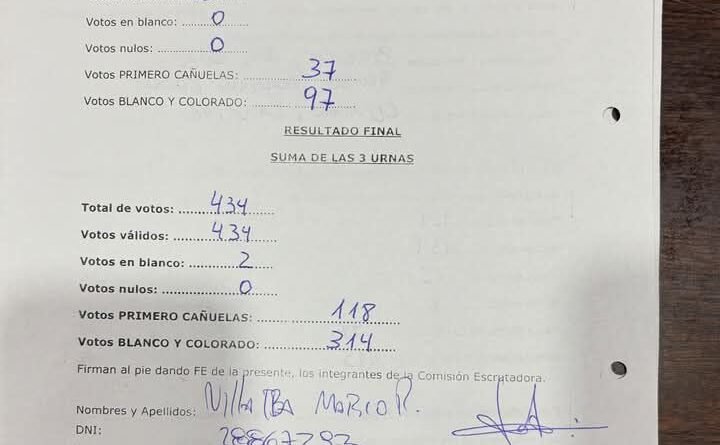 Votos en blanco: ........0......
Votos nulos: ........0......
Votos PRIMERO CAÑUELAS: ........37........
Votos BLANCO Y COLORADO: ........97........
RESULTADO FINAL
SUMA DE LAS 3 URNAS
Total de votos: ........434......
Votos válidos: ........434......
Votos en blanco: ........2......
Votos nulos: ........0......
Votos PRIMERO CAÑUELAS: ........118........
Votos BLANCO Y COLORADO: ........314........
Firman al pie dando FE de la presente, los integrantes de la Comisión Escrutadora.
Nombres y Apellidos: Villalba Marcio R.
DNI: